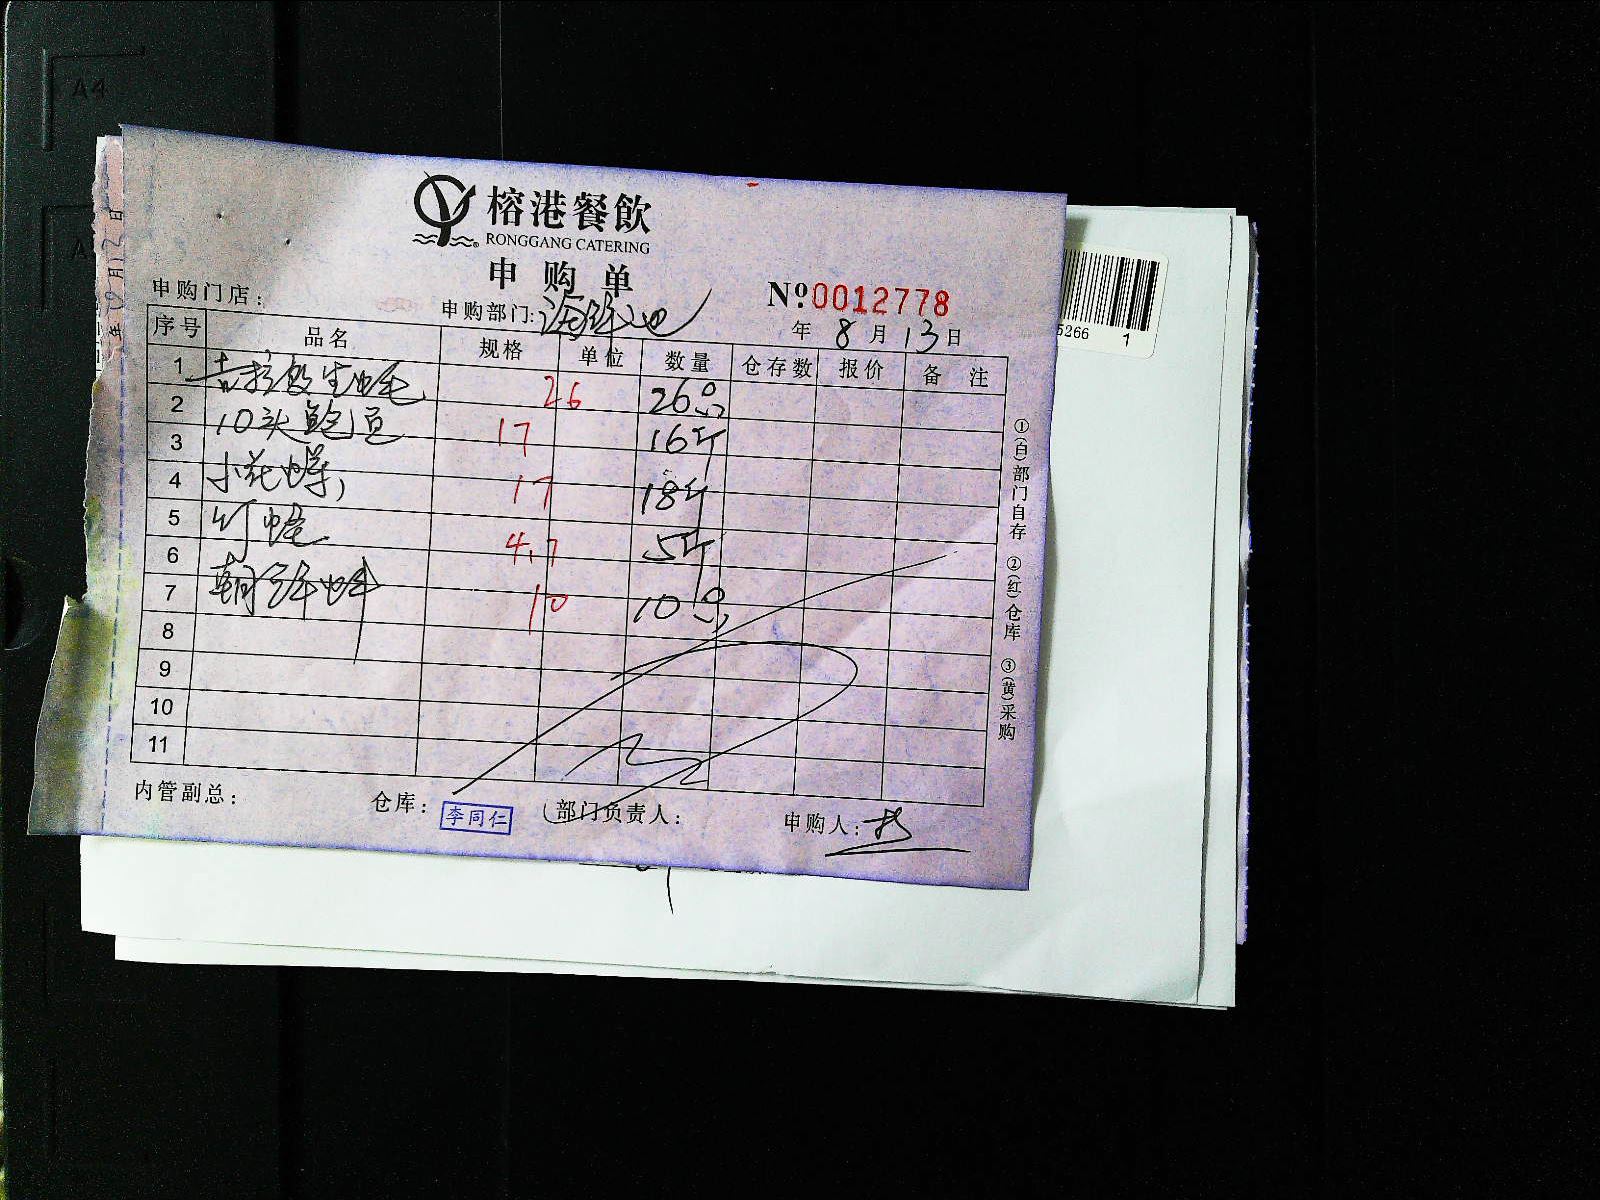 榕港餐飲
RONGGANG CATERING
申购单
申购门店：
申购部门：海鲜池
№ 0012778
年 8 月 13 日
序号 品名 规格 单位 数量 仓存数 报价 备注
1 吉拉多生蚝 26 26只
2 10头鲍 17 16斤
3
4 小花螺 17 18斤
5 竹蛏 4.7 5斤
6
7 朝鲜蚌 10 10只
8
9
10
11
①(白)部门自存 ②(红)仓库 ③(黄)采购
内管副总：
仓库：李同仁
部门负责人：
申购人：
A4
5266 1
10月12日